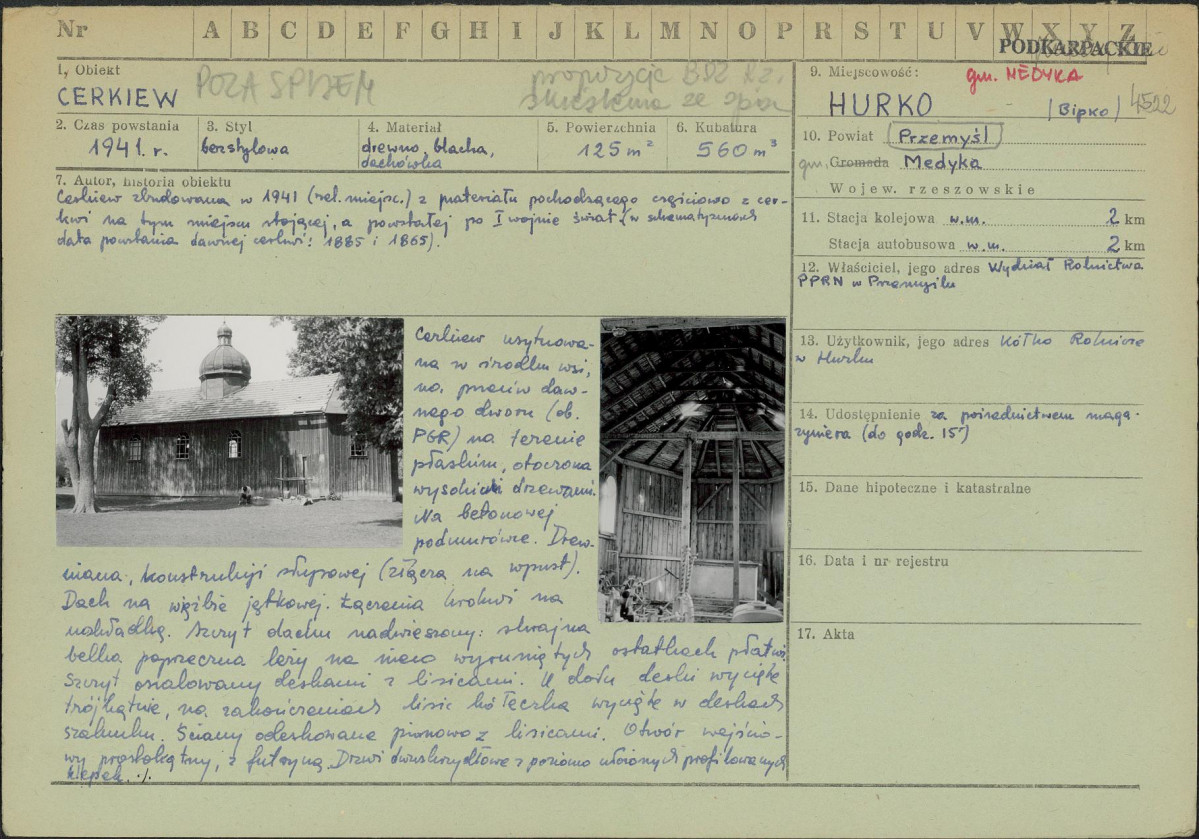 Nr A B C D E F G H I J K L M N O P R S T U V W X Y Z
PODKARPACKIE
1, Obiekt
CERKIEW
POZA SPISEM
propozycje
skreślenia ze spisu
2. Czas powstania
1941. r.
3. Styl
bezstylowa
4. Materiał
drewno, blacha,
dachówka
5. Powierzchnia
125 m²
6. Kubatura
560 m³
7. Autor, historia obiektu
Cerkiew zbudowana w 1941 (rel. miejsc.) z materiału pochodzącego częściowo z cer-
kwi na tym miejscu stojącej, a powstałej po I wojnie świat. (w schematyzmach
data powstania dawnej cerkwi: 1885 i 1865).
Cerkiew usytuowa-
na w środku wsi,
na przeciw daw-
nego dworu (ob.
PGR) na terenie
płaskim, otoczona
wysokimi drzewami.
Na betonowej
podmurówce. Drew-
niana, konstrukcji słupowej (złącza na wpust).
Dach na więźbie jętkowej. Łączenia krokwi na
nakładkę. Szczyt dachu nadwieszony: skrajna
belka poprzeczna leży na nieco wysuniętych ostatkach płatwi.
Szczyt oszalowany deskami z lisicami. U dołu deski wycięte
trójkątnie, na zakończeniach lisic kółeczka wycięte w deskach
szalunku. Ściany odeskowane pionowo z lisicami. Otwór wejścio-
wy prostokątny, z futryną. Drzwi dwuskrzydłowe z poziomo ułożonych profilowanych
klepek. ./.
9. Miejscowość:
gm. MEDYKA
HURKO
/Бірко/
4522
10. Powiat Przemyśl
gm. Gromada Medyka
Wojew. rzeszowskie
11. Stacja kolejowa w.m. 2 km
Stacja autobusowa w.m. 2 km
12. Właściciel, jego adres Wydział Rolnictwa
PPRN w Przemyślu
13. Użytkownik, jego adres Kółko Rolnicze
w Hurku
14. Udostępnienie za pośrednictwem maga-
zyniera (do godz. 15)
15. Dane hipoteczne i katastralne
16. Data i nr rejestru
17. Akta